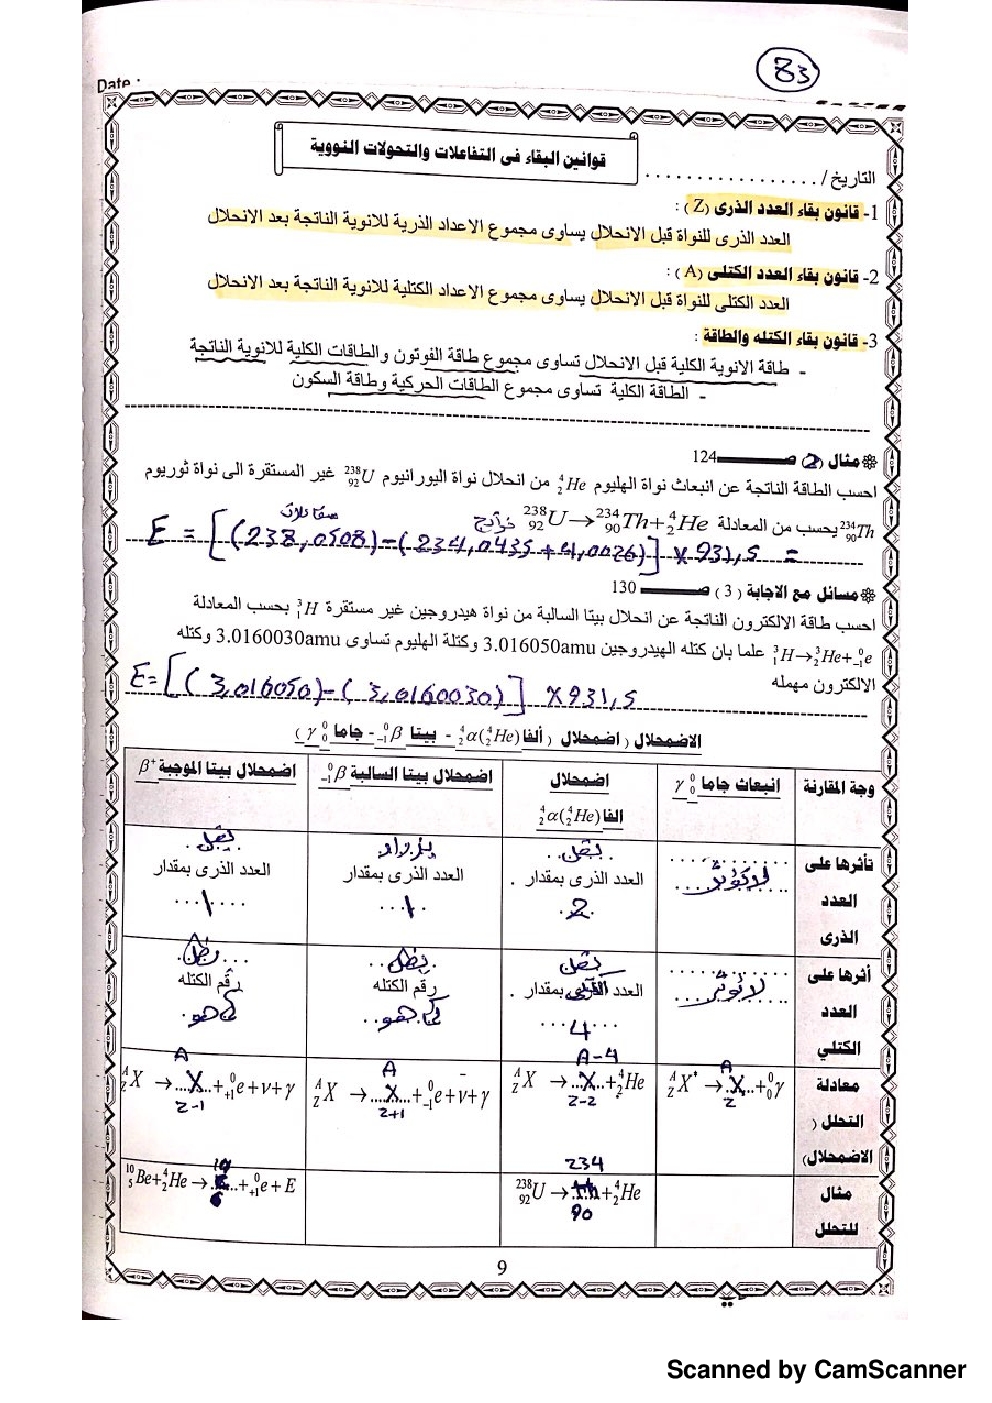 83
Date :
قوانين البقاء فى التفاعلات والتحولات النووية
التاريخ/ .................
1- قانون بقاء العدد الذرى (Z) :
العدد الذرى للنواة قبل الانحلال يساوى مجموع الاعداد الذرية للانوية الناتجة بعد الانحلال
2- قانون بقاء العدد الكتلى (A) :
العدد الكتلى للنواة قبل الانحلال يساوى مجموع الاعداد الكتلية للانوية الناتجة بعد الانحلال
3- قانون بقاء الكتله والطاقة :
- طاقة الانوية الكلية قبل الانحلال تساوى مجموع طاقة الفوتون والطاقات الكلية للانوية الناتجة
- الطاقة الكلية تساوى مجموع الطاقات الحركية وطاقة السكون
مثال (2) صـ 124
احسب الطاقة الناتجة عن انبعاث نواة الهليوم ⁴₂He من انحلال نواة اليورانيوم ²³⁸₉₂U غير المستقرة الى نواة ثوريوم
²³⁴₉₀Th يحسب من المعادلة ²³⁸₉₂U→²³⁴₉₀Th+⁴₂He نواتج
متفاعلات
E = [(238,0508)-(234,0435+4,0026)] x 931,5 =
مسائل مع الاجابة (3) صـ 130
احسب طاقة الالكترون الناتجة عن انحلال بيتا السالبة من نواة هيدروجين غير مستقرة ³₁H بحسب المعادلة
³₁H→³₂He+⁰₋₁e علما بان كتله الهيدروجين 3.016050amu وكتلة الهليوم تساوى 3.0160030amu وكتله
الالكترون مهمله
E=[(3,016050)-(3,0160030)] x931,5
الاضمحلال ( اضمحلال ( ألفا ⁴₂α(⁴₂He) - بيتا ⁰₋₁β - جاما ⁰₀γ )
وجة المقارنة انبعاث جاما ⁰₀γ اضمحلال الفا ⁴₂α(⁴₂He) اضمحلال بيتا السالبة ⁰₋₁β اضمحلال بيتا الموجبة β⁺
تأثرها على العدد الذرى لا تؤثر يقل العدد الذرى بمقدار 2 يزداد العدد الذرى بمقدار 1 يقل العدد الذرى بمقدار 1
أثرها على العدد الكتلي لا تؤثر يقل العدد بمقدار 4 يظل رقم الكتله كما هو يظل رقم الكتله كما هو
معادلة التحلل ( الاضمحلال) ᴬ_Z X* → ᴬ_Z X + ⁰₀γ ᴬ_Z X → ᴬ⁻⁴_Z-2 X + ⁴₂He ᴬ_Z X → ᴬ_Z+1 X + ⁰₋₁e+ν+γ ᴬ_Z X → ᴬ_Z-1 X + ⁰₊₁e+ν+γ
مثال للتحلل ²³⁸₉₂U → ²³⁴₉₀Th + ⁴₂He ¹⁰₅Be+⁴₂He → ¹⁰₆ + ⁰₊₁e+E
9
Scanned by CamScanner